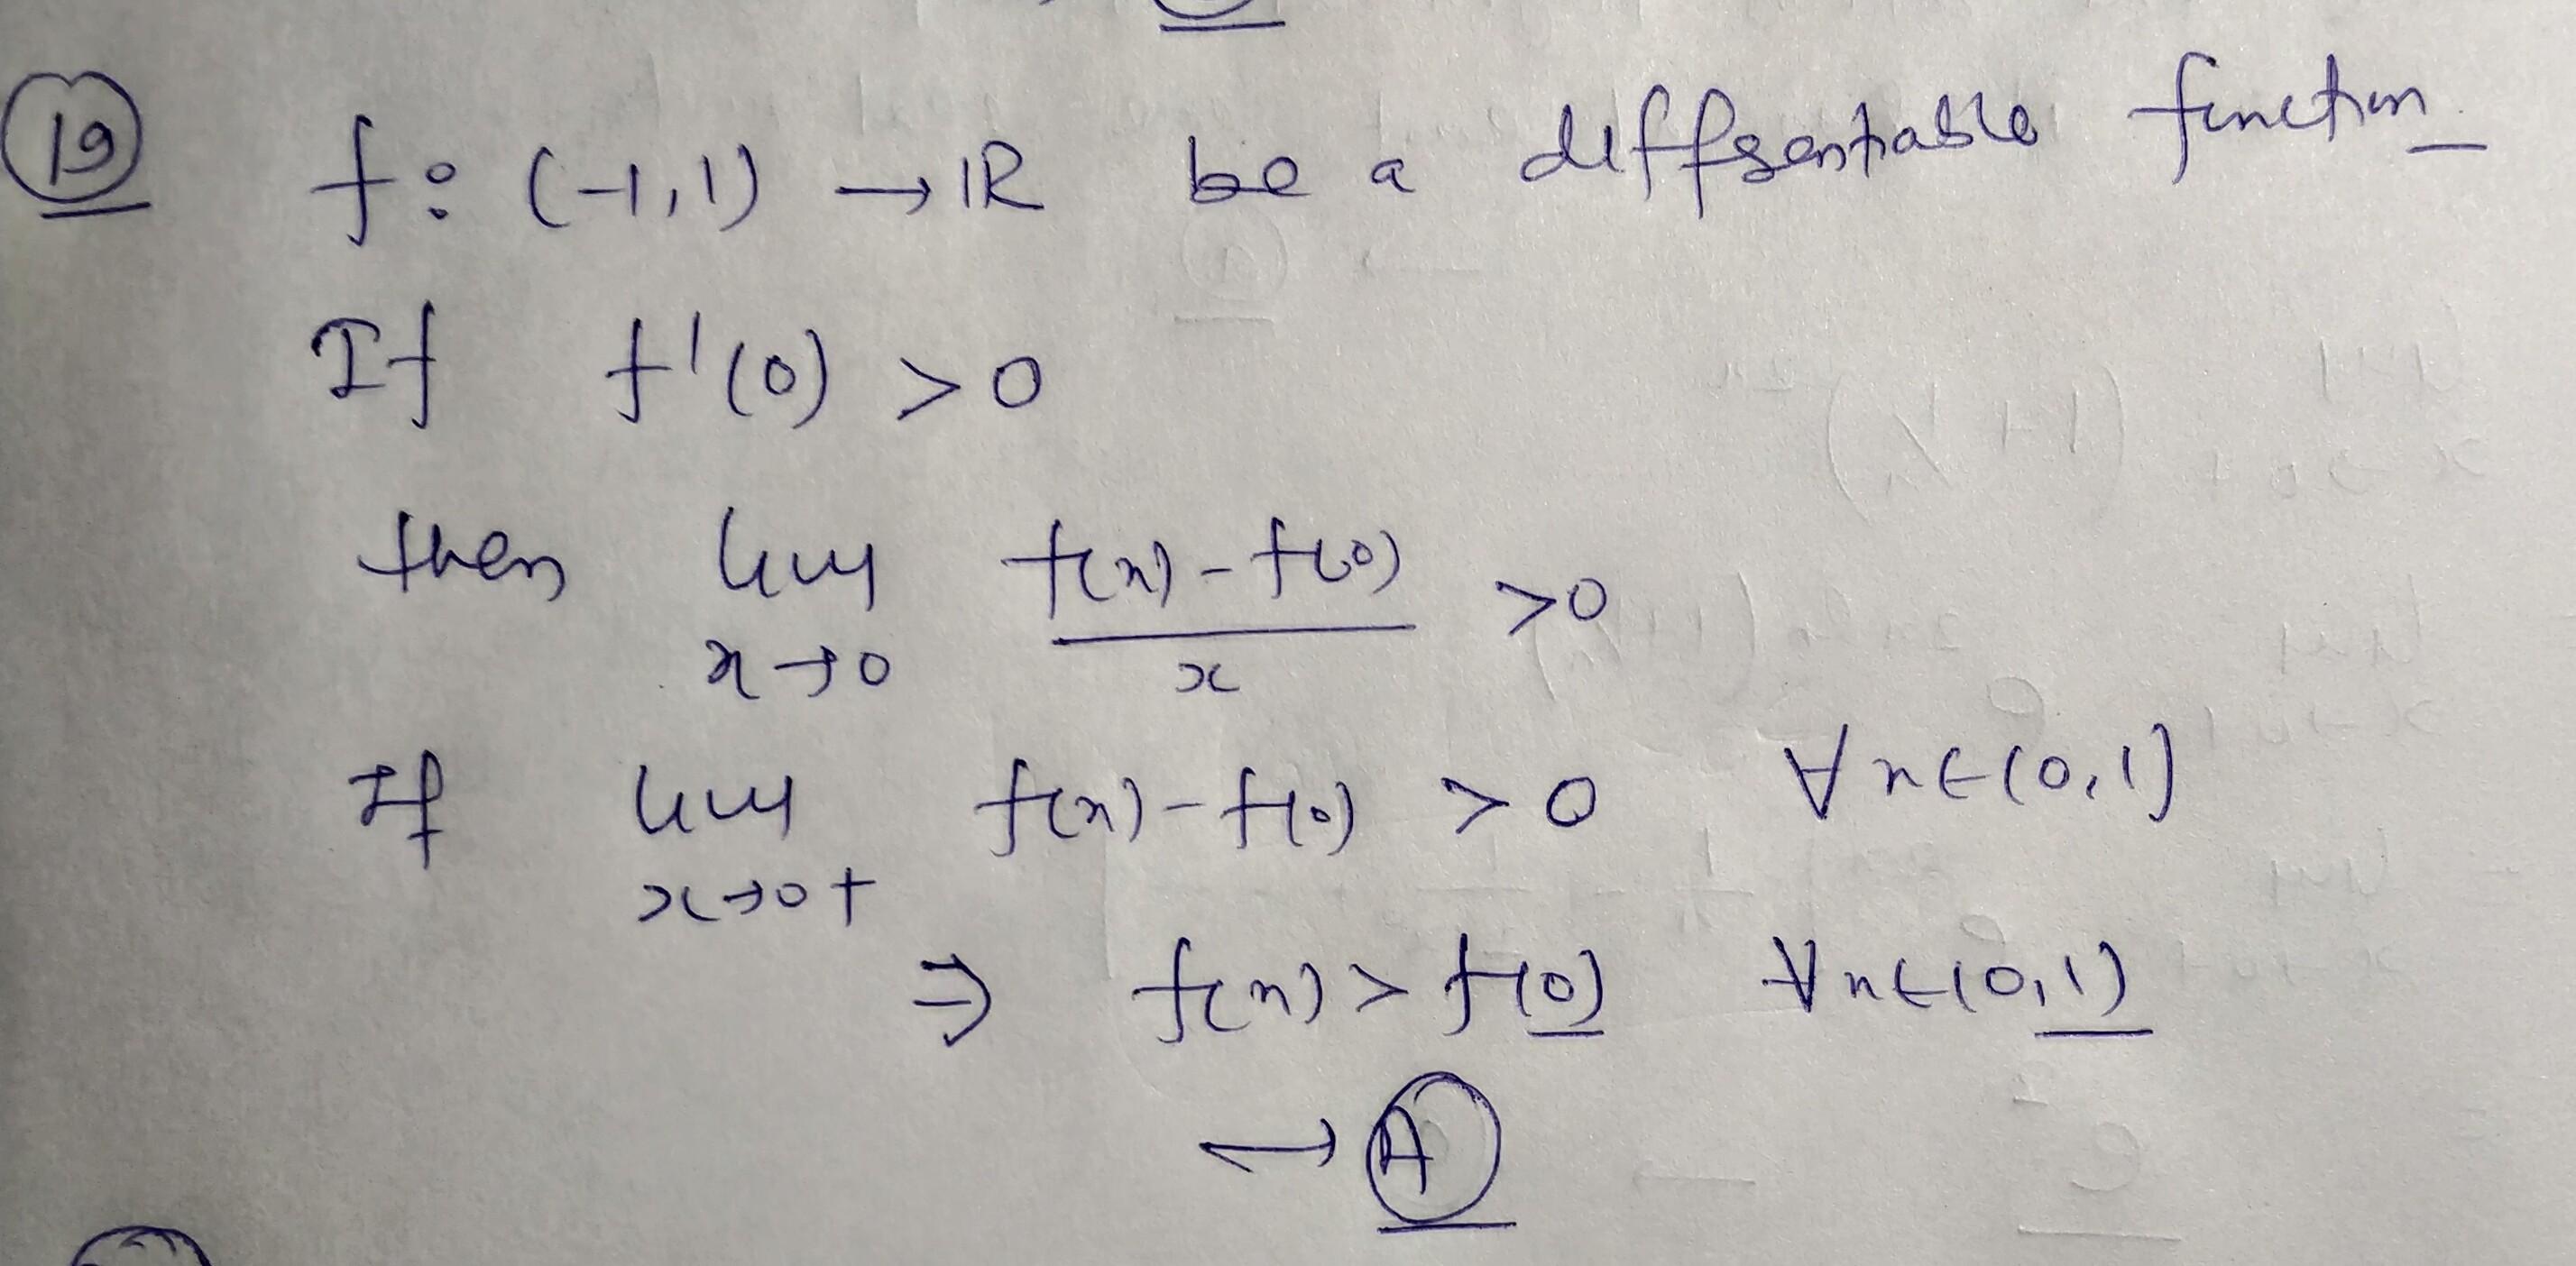 19 f: (-1,1) → ℝ be a differentiable function
If f'(0) > 0
then lim x→0 (f(x) - f(0))/x > 0
If lim x→0+ f(x) - f(0) > 0 ∀ x ∈ (0,1)
⇒ f(x) > f(0) ∀ x ∈ (0,1)
→ A